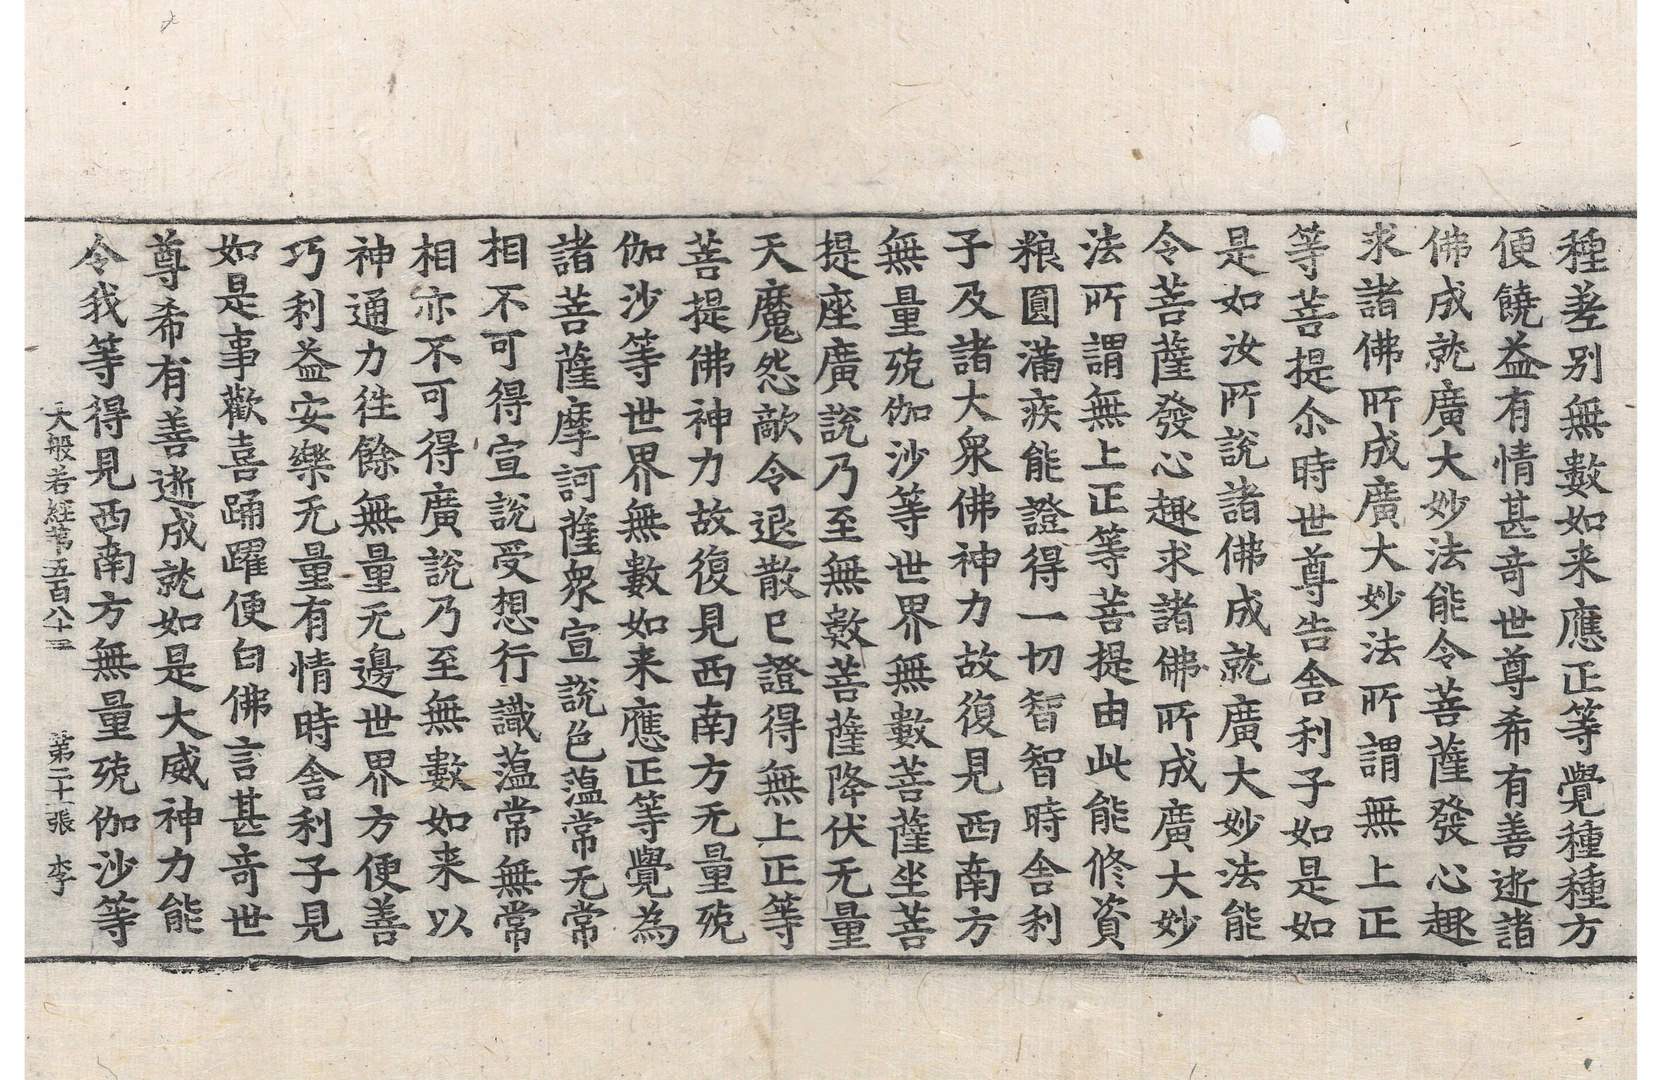 種差別無數如来應正等覺種種方
便饒益有情甚奇世尊希有善逝諸
佛成就廣大妙法能令菩薩發心趣
求諸佛所成廣大妙法所謂無上正
等菩提尒時世尊告舎利子如是如
是如汝所說諸佛成就廣大妙法能
令菩薩發心趣求諸佛所成廣大妙
法所謂無上正等菩提由此能修資
粮圓滿疾能證得一切智智時舎利
子及諸大衆佛神力故復見西南方
無量殑伽沙等世界無數菩薩坐菩
提座廣說乃至無數菩薩降伏无量
天魔怨敵令退散已證得無上正等
菩提佛神力故復見西南方无量殑
伽沙等世界無數如来應正等覺為
諸菩薩摩訶薩衆宣說色藴常无常
相不可得宣說受想行識藴常無常
相亦不可得廣說乃至無數如来以
神通力徃餘無量无邊世界方便善
巧利益安樂无量有情時舎利子見
如是事歡喜踊躍便白佛言甚奇世
尊希有善逝成就如是大威神力能
令我等得見西南方無量殑伽沙等
大般若經苐五百八十三 第二十一張 李